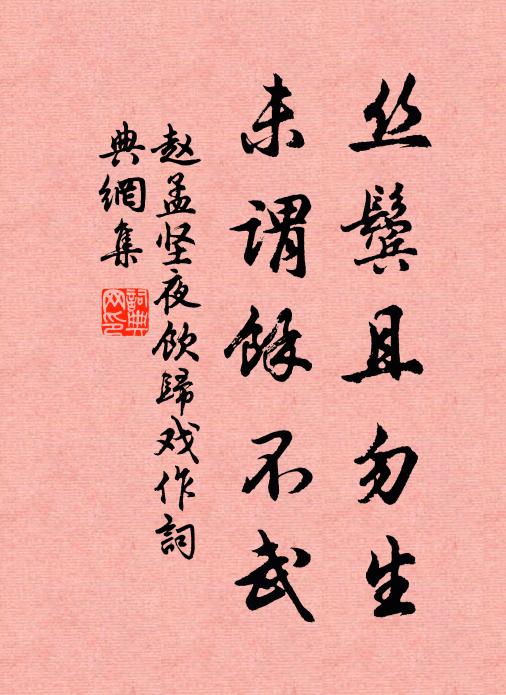 丝鬓且勿生
未谓馀不武
赵孟坚夜饮歸戏作詞
典網集
詞典网印